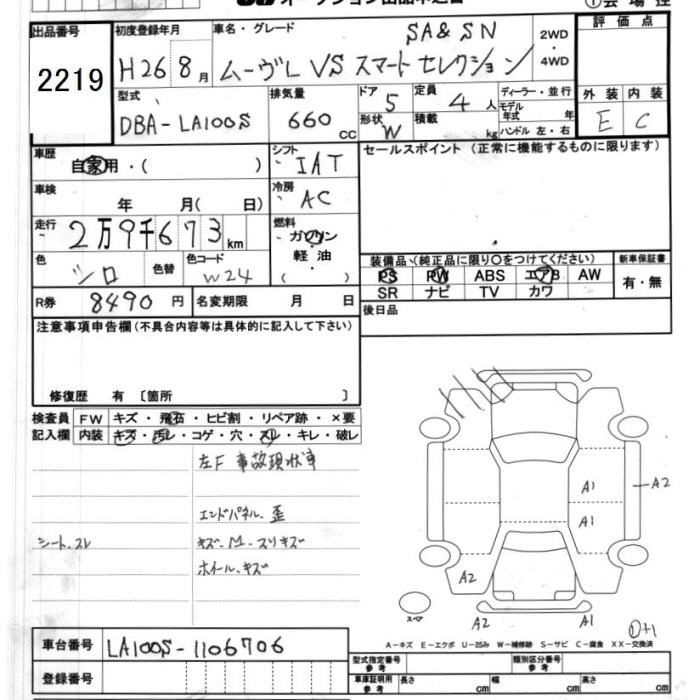 出品番号 2219
初度登録年月 H26 8月
車名・グレード SA&SN
ムーヴL VS スマートセレクション
2WD・4WD
評価点
外装 内装
E C
型式 DBA-LA100S
排気量 660 CC
ドア 5 形状 W
定員 4人 積載 kg
ディーラー・並行
モデル年式 年
ハンドル 左・右
車歴 自家用・( )
シフト IAT
セールスポイント (正常に機能するものに限ります)
車検 年 月( 日)
冷房 AC
走行 2万9千673 km
燃料 ガソリン 軽油・( )
色 シロ 色替 色コード W24
装備品 (純正品に限り〇をつけてください)
新車保証書
PS PW ABS エアB AW
有・無
SR ナビ TV カワ
R券 8490円 名変期限 月 日
後日品
注意事項申告欄(不具合内容等は具体的に記入して下さい)
修復歴 有 〔箇所 〕
検査員記入欄
FW キズ・飛石・ヒビ割・リペア跡・×要
内装 キズ・汚レ・コゲ・穴・スレ・キレ・破レ
左F 事故現状車
エンドパネル、歪
シート、スレ
キズ、M-スリキズ
ホイール、キズ
A1
A2
A1
A2
スペア
A2
A1
①+1
A-キズ E-エクボ U-凹み W-補修跡 S-サビ C-腐食 XX-交換済
車台番号 LA100S-1106706
型式指定番号 参考
類別区分番号 参考
登録番号
車庫証明用 参考
長さ cm
幅 cm
高さ cm